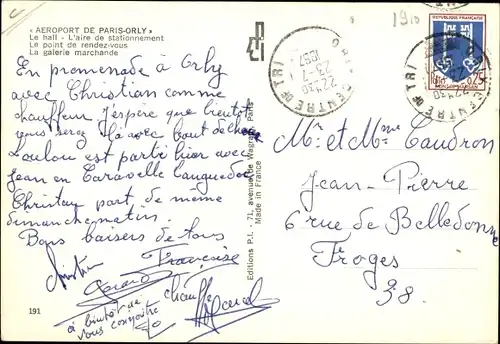 « AEROPORT DE PARIS-ORLY »
Le hall - L'aire de stationnement
Le point de rendez-vous
La galerie marchande
En promenade à Orly
avec Christian comme
chauffeur J'espère que bientôt
vous serez là avec bout de chou
Loulou est parti hier avec
Jean en Caravelle Languedoc
Christian part de même
dimanche matin.
Bons baisers de tous
Françoise
Christian
Gérard
chauffeur
à bientôt de
vous connaître
191
Editions P.I. - 71, avenue de Wagram - Paris
Made in France
CENTRE DE TRI
22H30
23-7
1910
REPUBLIQUE FRANÇAISE
0,25
MONT-DE-MARSAN
Mr et Mme Caudron
Jean-Pierre
6 rue de Belledonne
Froges
38.